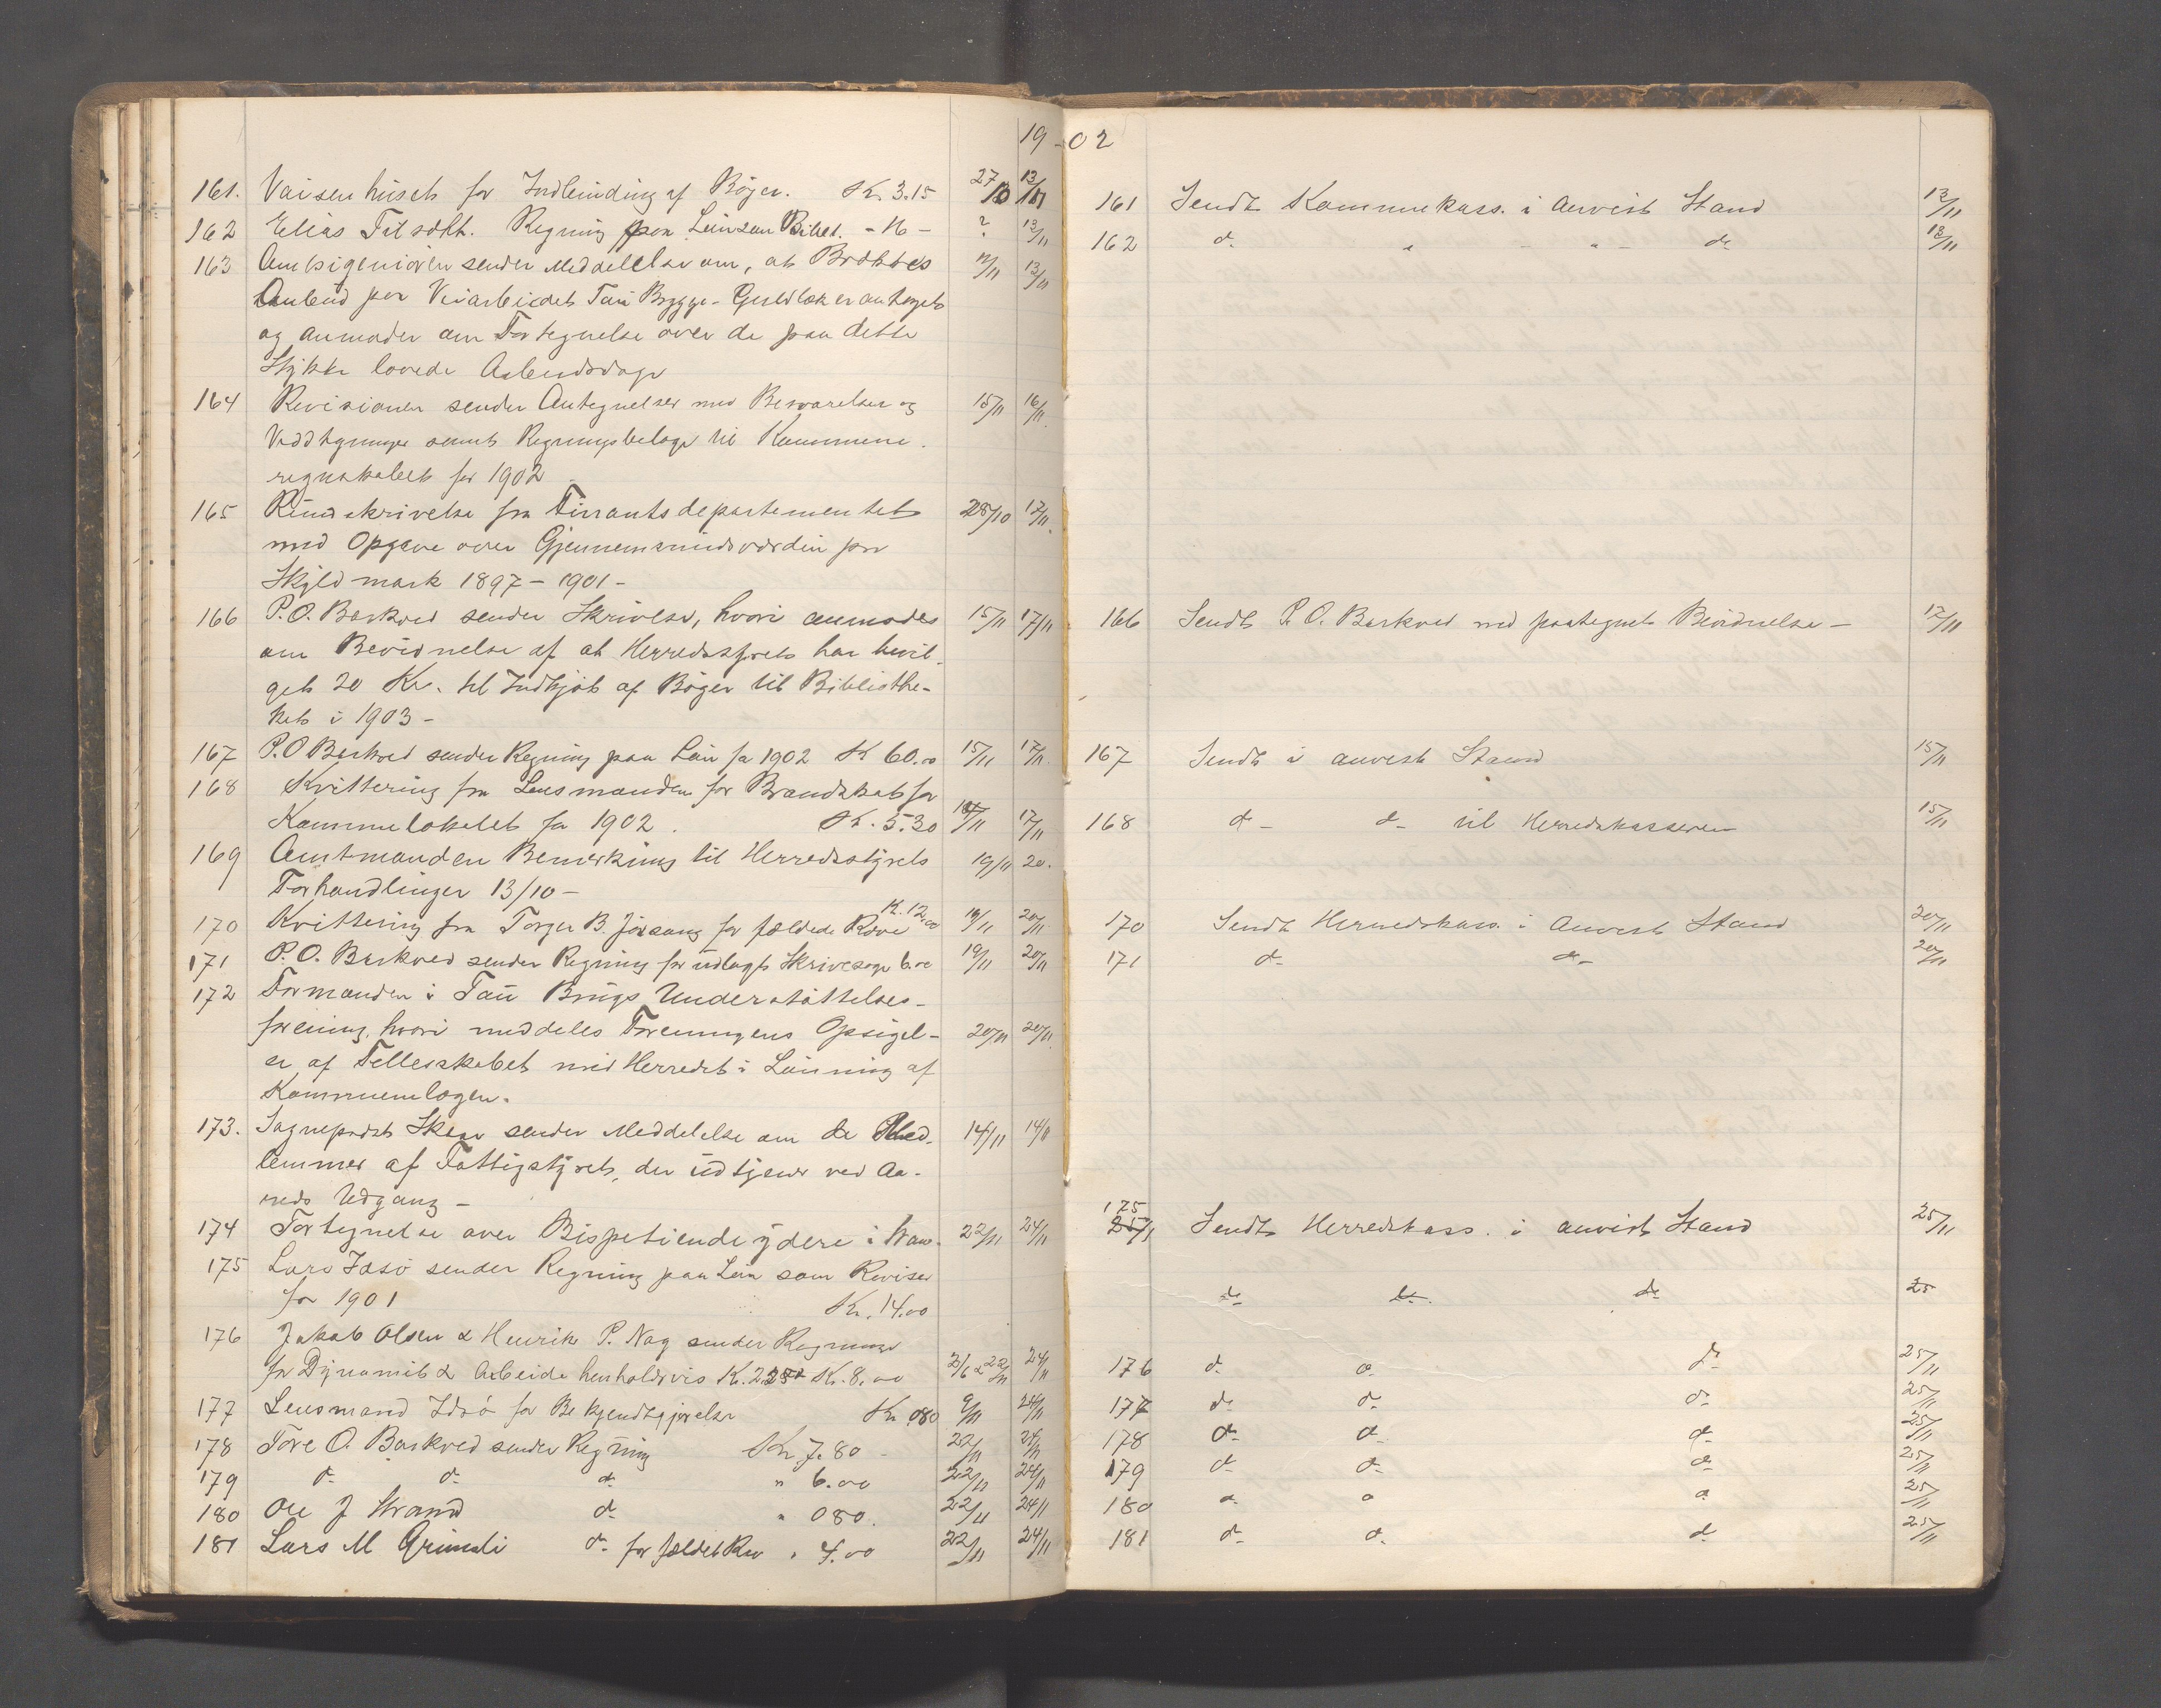 19-02
161. Vaisenhuset for Indbinding af Bøger. Kr. 3.15 27/10 13/11
162 Elias Tilsokh. Regning paa Løn som Bibl. - 16 - ? 13/11
163 Amtsigeniøren sender Meddelelse om, at Brokkes 11/11 13/11
Anbud paa Veiarbeidet Tau Brygge - er antaget
og anmoder om Fortegnelse over de paa dette
Stykke lovede Arbeidsdage
164 Revisionen sender Antegnelser med Besvarelser og 15/11 16/11
Vedtegninger samt Regningsbelage til Kommune-
regnskabet for 1902
165 Rundskrivelse fra Finantsdepartementet 28/10 17/11
med Opgave over Gjennemsnidsværdien pr
Skyldmark 1897 - 1901 -
166 P. O. Barkved sender Skrivelse, hvori anmodes 15/11 17/11
om Bevidnelse af at Herredsstyret har bevil-
get 20 Kr. til Indkjøb af Bøger til Bibliothe-
ket i 1903 -
167 P. O Barkved sender Regning paa Løn for 1902 Kr 60.00 15/11 17/11
168 Kvittering fra Lensmanden for Brandskat for
Kommunelokalet for 1902. Kr. 5.30 14/11 17/11
169 Amtmanden Bemerkning til Herredsstyrets 19/11 20.
Forhandlinger 13/10 -
170 Kvittering fra Torger B. Jøsang for fældede Ræve Kr. 12.00 19/11 20/11
171 P. O. Barkved sender Regning for udlagt Skrivesager 6.00 19/11 20/11
172 Formanden i Tau Brugs Understøttelses-
forening, hvori meddeles Foreningens Opsigel- 20/11 20/11
se af Fellesskabet med Herredet i Lønning af
Kommunelægen.
173. Sogneprest Skeie sender Meddelelse om de Med- 14/11 14/11
lemmer af Fattigstyret, der udtjener ved Aa-
rets Udgang -
174 Fortegnelse over Bispetiendeydere i Strand. 22/11 24/11
175 Lars Idsø sender Regning paa Løn som Revisor
for 1901 Kr. 14.00
176 Jakob Olsen & Henrik P. Nag sender Regninger
for Dynamit & Arbeide henholdsvis Kr. 2.25 & Kr. 8.00 2/6 & 22/11 24/11
177 Lensmand Idsø for Bekjendtgjørelse Kr. 080 9/11 24/11
178 Tore O. Barkved sender Regning Kr 7.80 - 22/11 24/11
179 d- d- d- " 6.00 22/11 24/11
180 Ole J Strand d- " 080. 22/11 24/11
181 Lars M Grimsli d- for fældet Ræv " 4.00 22/11 24/11
161 Sendt Kommunekass. i anvist Stand 13/11
162 d- " - " - d- 13/11
166 Sendt P. O. Barkved med paategnet Bevidnelse - 17/11
167 Sendt i anvist Stand 15/11
168 d- d- til Herredskasseren 15/11
170 Sendt Herredskass. i anvist Stand 20/11
171 d- d- 20/11
175 Sendt Herredskass. i anvist Stand 25/11
d- d- d- 25
176 d- d- d- 25/11
177 d- d- d- 25/11
178 d- d- d- 25/11
179 d- d- d- 25/11
180 d- d- d- 25/11
181 d- d- d- 25/11